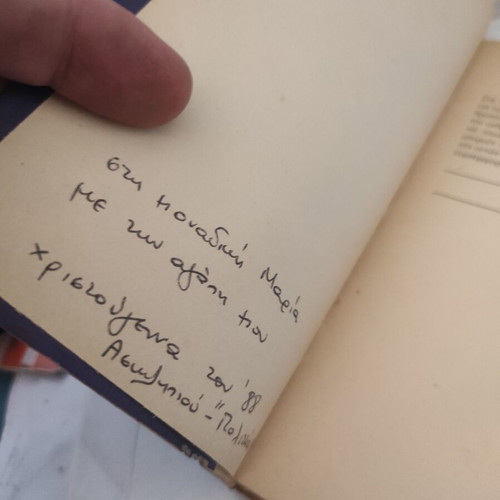 στη μοναδική Μαρία
με την αγάπη μου
Χριστούγεννα του '88
Ασκληπιού - "Πολι